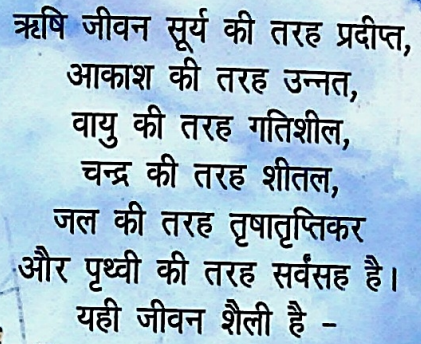 ऋषि जीवन सूर्य की तरह प्रदीप्त,
आकाश की तरह उन्नत,
वायु की तरह गतिशील,
चन्द्र की तरह शीतल,
जल की तरह तृषातृप्तिकर
और पृथ्वी की तरह सर्वंसह है।
यही जीवन शैली है –